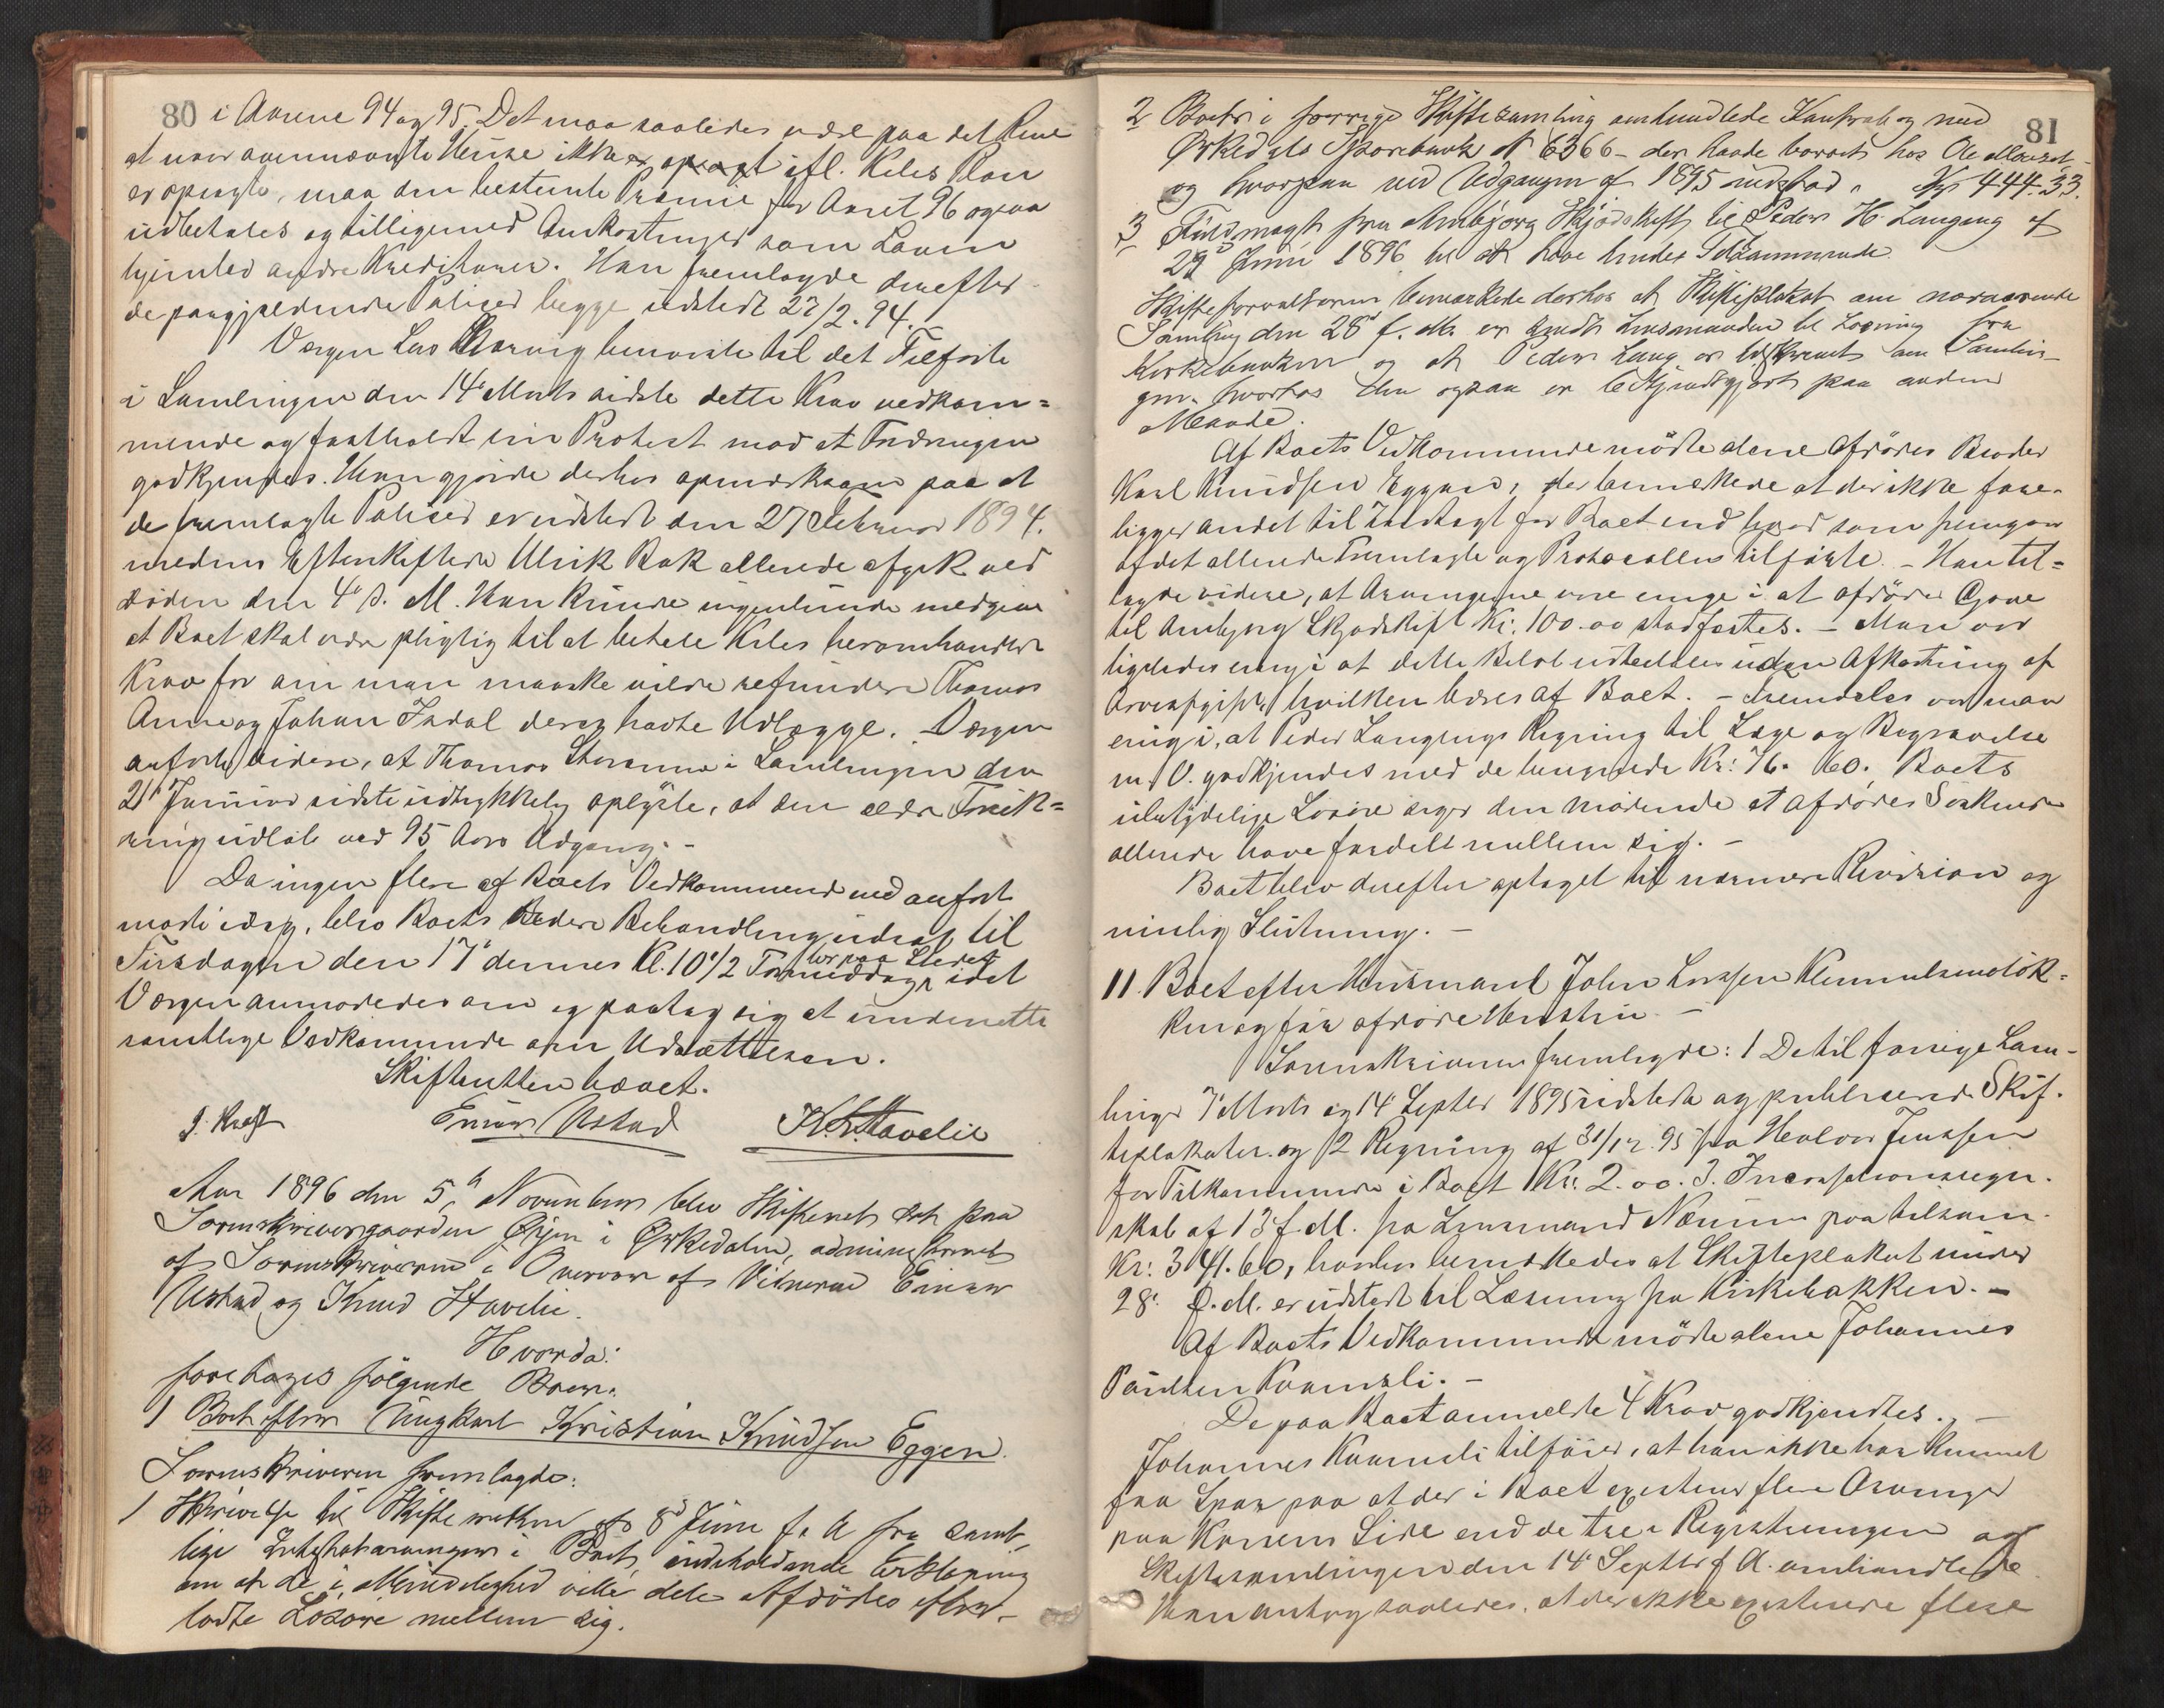 80 i Aarene 94 og 95. Det maa saaledes være paa det Rene
at naar ovennævnte Huse ikke er opsagt ifl. Keles Plan
er opsagte, maa den bestemte Præmie for Aaret 96 ogsaa
udbetales og tilligemed Omkostninger som Loven
hjemler andre Kreditorer. Han fremlagde derefter
de paagjældende Policer begge udstedt 27/2. 94.
Værgen Lars benviste til det Tilførte
i Samlingen den 14de Marts sidste dette Krav vedkom=
mende og fastholdt sin Protest mod at Fordringen
godkjendes. Han gjorde derhos opmærksom paa at
de fremlagte Policer er udstedt den 27 Februar 1894.
medens Efterskiftede Ulrik Bak allerede afgik ved
Døden den 4de s. M. Han kunde ingenlunde medgive
at Boet skal være pligtig til at betale Keles heromhandlede
Krav for om man maaske vilde refundere Thomas
Anne og Johan Indal deres havte Udlægge. Værgen
anførte videre, at Thomas i Samlingen den
21de Januar sidste udtrykkelig oplyste, at den ældre
udløb ved 95 Aars Udgang. -
Da ingen flere af Boets Vedkommende ved anført
mødte idag, blev Boets videre Behandling udsat til
Tirsdagen den 17de dennes Kl. 10 1/2 Formiddag her paa Stedet idet
Værgen anmodedes om og paatog sig at underrette
samtlige Vedkommende om Udsættelsen.
Skifteretten hævet.
Einar Ustad K. Stavelie
Aar 1896 den 5te November blev Skifteret sat paa
Sorenskrivergaarden Øyen i Ørkedalen, administreret
af Sorenskriveren i Overvær af Vitnerne Einar
Ustad og Knud Stavelie.
Hvorda:
foretoges følgende Boer:
1 Boet efter Ungkarl Kristian Knudsen Eggen.
Sorenskriveren fremlagde:
1 Skrivelse til Skifteretten af 8de Juni f. A. fra samt-
lige Intestatarvinger i Boet, indeholdende Erklæring
om at de i Mindelighed ville dele Afdødes efter-
ladte Løsøre mellem sig.
81
2 Boets i forrige Skiftesamling omhandlede Kontrabog med
Ørkedals Sparebank No 6366 - der havde beroet hos Ole
og hvorpaa ved Udgangen af 1895 indstod Kr 444.33.
3 Fuldmagt fra Anbjørg Skjødskift til Peder H. Langeng af
29de Juni 1896 til at hæve hendes Tilkommende.
Skifteforvalteren bemærkede derhos at Skifteplakat om nærværende
Samling den 28de f. Mts er sendt Lensmanden til Læsning fra
Kirkebakken og at Peder Lang er tilskrevet om Samlin-
gen, hvorhos den ogsaa er bekjendtgjort paa anden
Maade.
Af Boets Vedkommende mødte alene Afdødes Broder
Karl Knudsen Eggen, der bemærkede at der ikke fore-
ligger andet til Indtægt for Boet end hvad som fremgaar
af det allerede Fremlagte og Protocollen tilførte. - Han til=
lagde videre, at Arvingerne vare enige i at afdødes Gave
til Anbjørg Skjødskift Kr. 100.00 stadfæstes. - Man var
ligeledes enig i at dette Beløb udbetales uden Afkortning af
Arveafgift, hvilken bæres af Boet. - Fremdeles var man
enig i, at Peder Langengs Regning til Læge og Begravelse
m. V. godkjendes med de beregnede Kr: 76. 60. Boets
ubetydelige Løsøre siger den mødende at afdødes Søskende
allerede have fordelt mellem sig. -
Boet blev derefter optaget til nærmere Revision og
mulig Slutning. -
11. Boet efter Husmand John Larsen
ken og før afdøde Hustru -
Sorenskriveren fremlagde: 1 De til forrige Sam-
linger 7 Marts og 14 Septbr 1895 udstedte og publicerede Skif-
teplakater og 2 Regning af 31/12. 95 fra Halvor Jensen
for Tilkommende i Boet Kr. 2.00. 3. Incassationsregn-
skab af 13 f. M. fra Lensmand Næiim paa tilsam-
Kr: 341.60, hvorhos bemærkedes at Skifteplakat under
28de f. M. er udstedt til Læsning fra Kirkebakken. -
Af Boets Vedkommende mødte alene Johannes
Paulsen Kvamsli. -
De paa Boet anmeldte 4 Krav godkjendtes. -
Johannes Kvamsli tilføier, at han ikke har kunnet
faa Spor paa at der i Boet existerer flere Arvinger
paa Konens Side end de tre i Registreringen og
Skiftesamlingen den 14de Septbr f. A. omhandlede
Han antog saaledes, at der ikke existerer flere